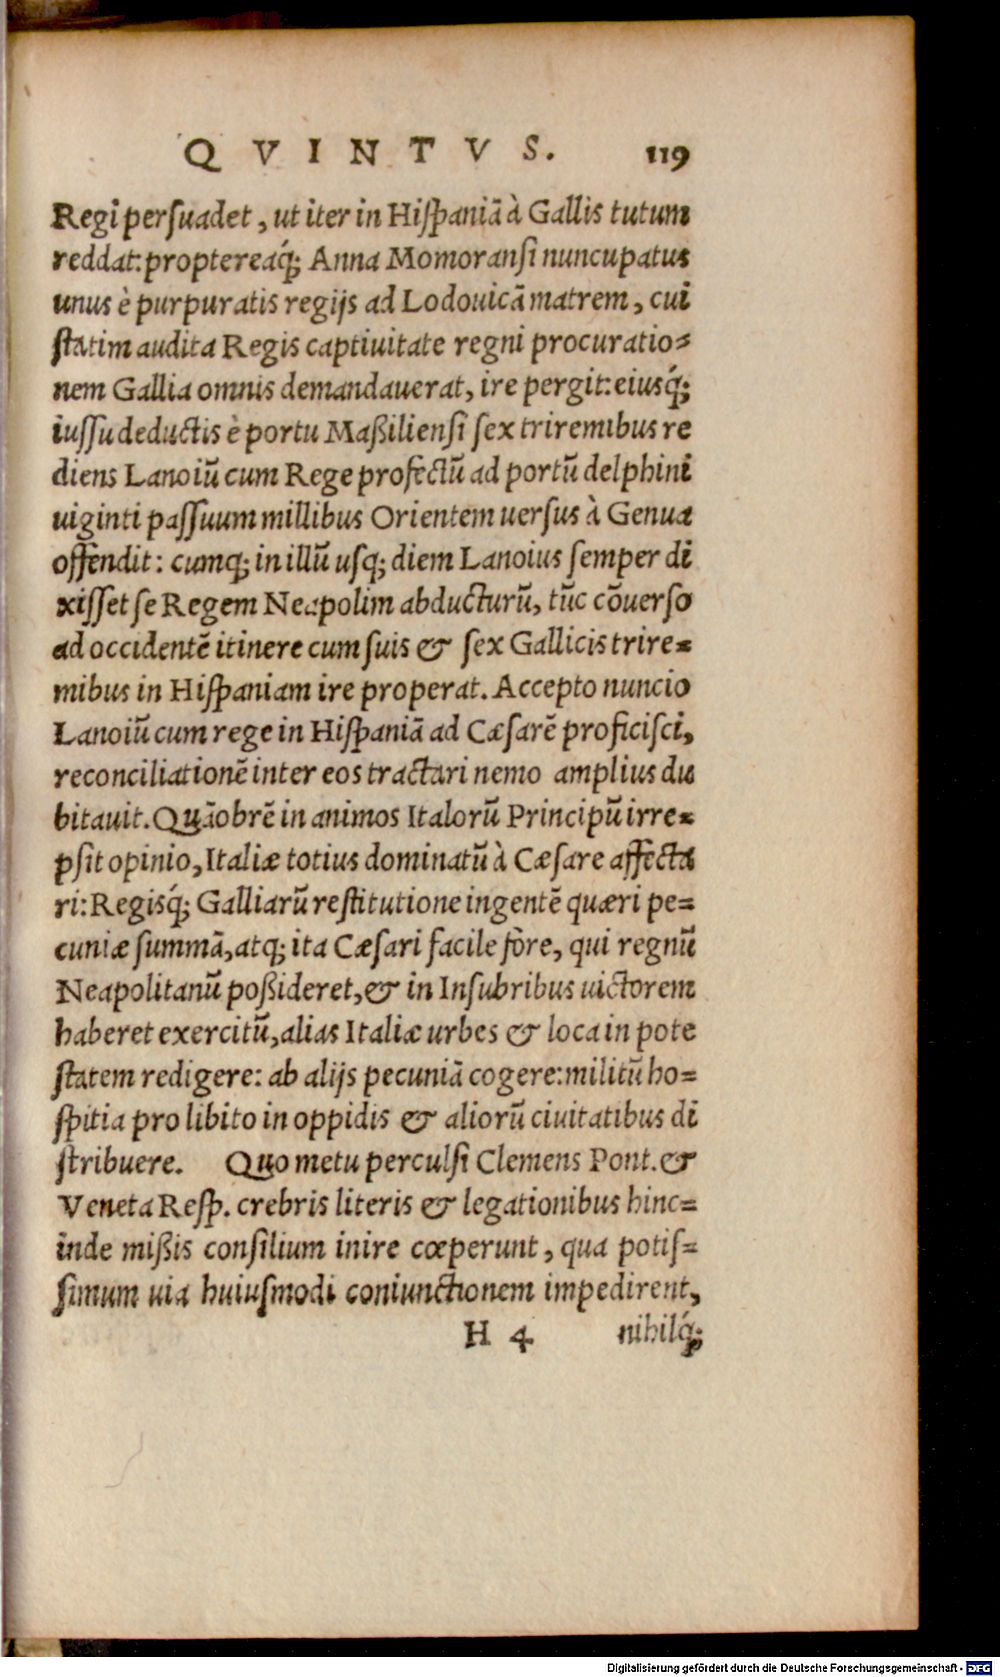 QVINTVS. 119
Regi persuadet, ut iter in Hispaniā à Gallis tutum
reddat: proptereaq́; Anna Momoransi nuncupatus
unus è purpuratis regijs ad Lodouicā matrem, cui
statim audita Regis captiuitate regni procuratio=
nem Gallia omnis demandauerat, ire pergit: eiusq́;
iussu deductis è portu Maßiliensi sex triremibus re
diens Lanoiū cum Rege profectū ad portū delphini
uiginti passuum millibus Orientem uersus à Genua
offendit: cumq; in illū usq; diem Lanoius semper di
xisset se Regem Neapolim abducturū, tūc cōuerso
ad occidentē itinere cum suis & sex Gallicis trire=
mibus in Hispaniam ire properat. Accepto nuncio
Lanoiū cum rege in Hispaniā ad Cæsarē proficisci,
reconciliationē inter eos tractari nemo amplius du
bitauit. Quāobrē in animos Italorū Principū irre=
psit opinio, Italiæ totius dominatū à Cæsare affecta
ri: Regisq́; Galliarū restitutione ingentē quæri pe=
cuniæ summā, atq; ita Cæsari facile fore, qui regnū
Neapolitanū poßideret, & in Insubribus uictorem
haberet exercitū, alias Italiæ urbes & loca in pote
statem redigere: ab alijs pecuniā cogere: militū ho=
spitia pro libito in oppidis & aliorū ciuitatibus di
stribuere. Quo metu perculsi Clemens Pont. &
Veneta Resp. crebris literis & legationibus hinc=
inde mißis consilium inire cœperunt, qua potis=
simum uia huiusmodi coniunctionem impedirent,
H 4 nihilq́;
Digitalisierung gefördert durch die Deutsche Forschungsgemeinschaft - DFG